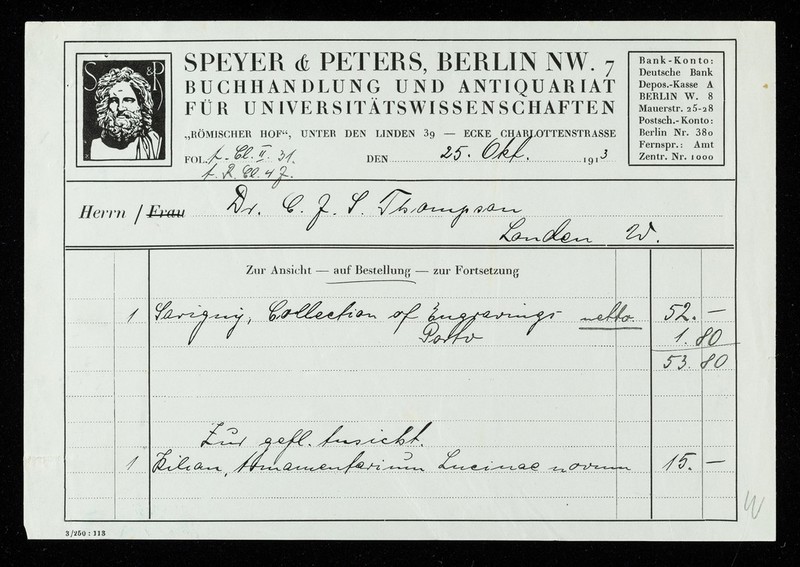 S & P
SPEYER & PETERS, BERLIN NW. 7
BUCHHANDLUNG UND ANTIQUARIAT
FÜR UNIVERSITÄTSWISSENSCHAFTEN
„RÖMISCHER HOF“, UNTER DEN LINDEN 39 — ECKE CHARLOTTENSTRASSE
Bank-Konto:
Deutsche Bank
Depos.-Kasse A
BERLIN W. 8
Mauerstr. 25-28
Postsch.-Konto:
Berlin Nr. 380
Fernspr.: Amt
Zentr. Nr. 1000
FOL. Cl. II. 31. DEN 25. Okt. 1913
Herrn / Frau Dr. C. J. S. Thompson
London W.
Zur Ansicht — auf Bestellung — zur Fortsetzung
1 Savigny, Collection of Engravings netto. 52. —
Porto 1. 80
53. 80
Zur gefl. Ansicht.
1 Kilian, Armamentarium Lucinae novum 15. —
3/250 : 113